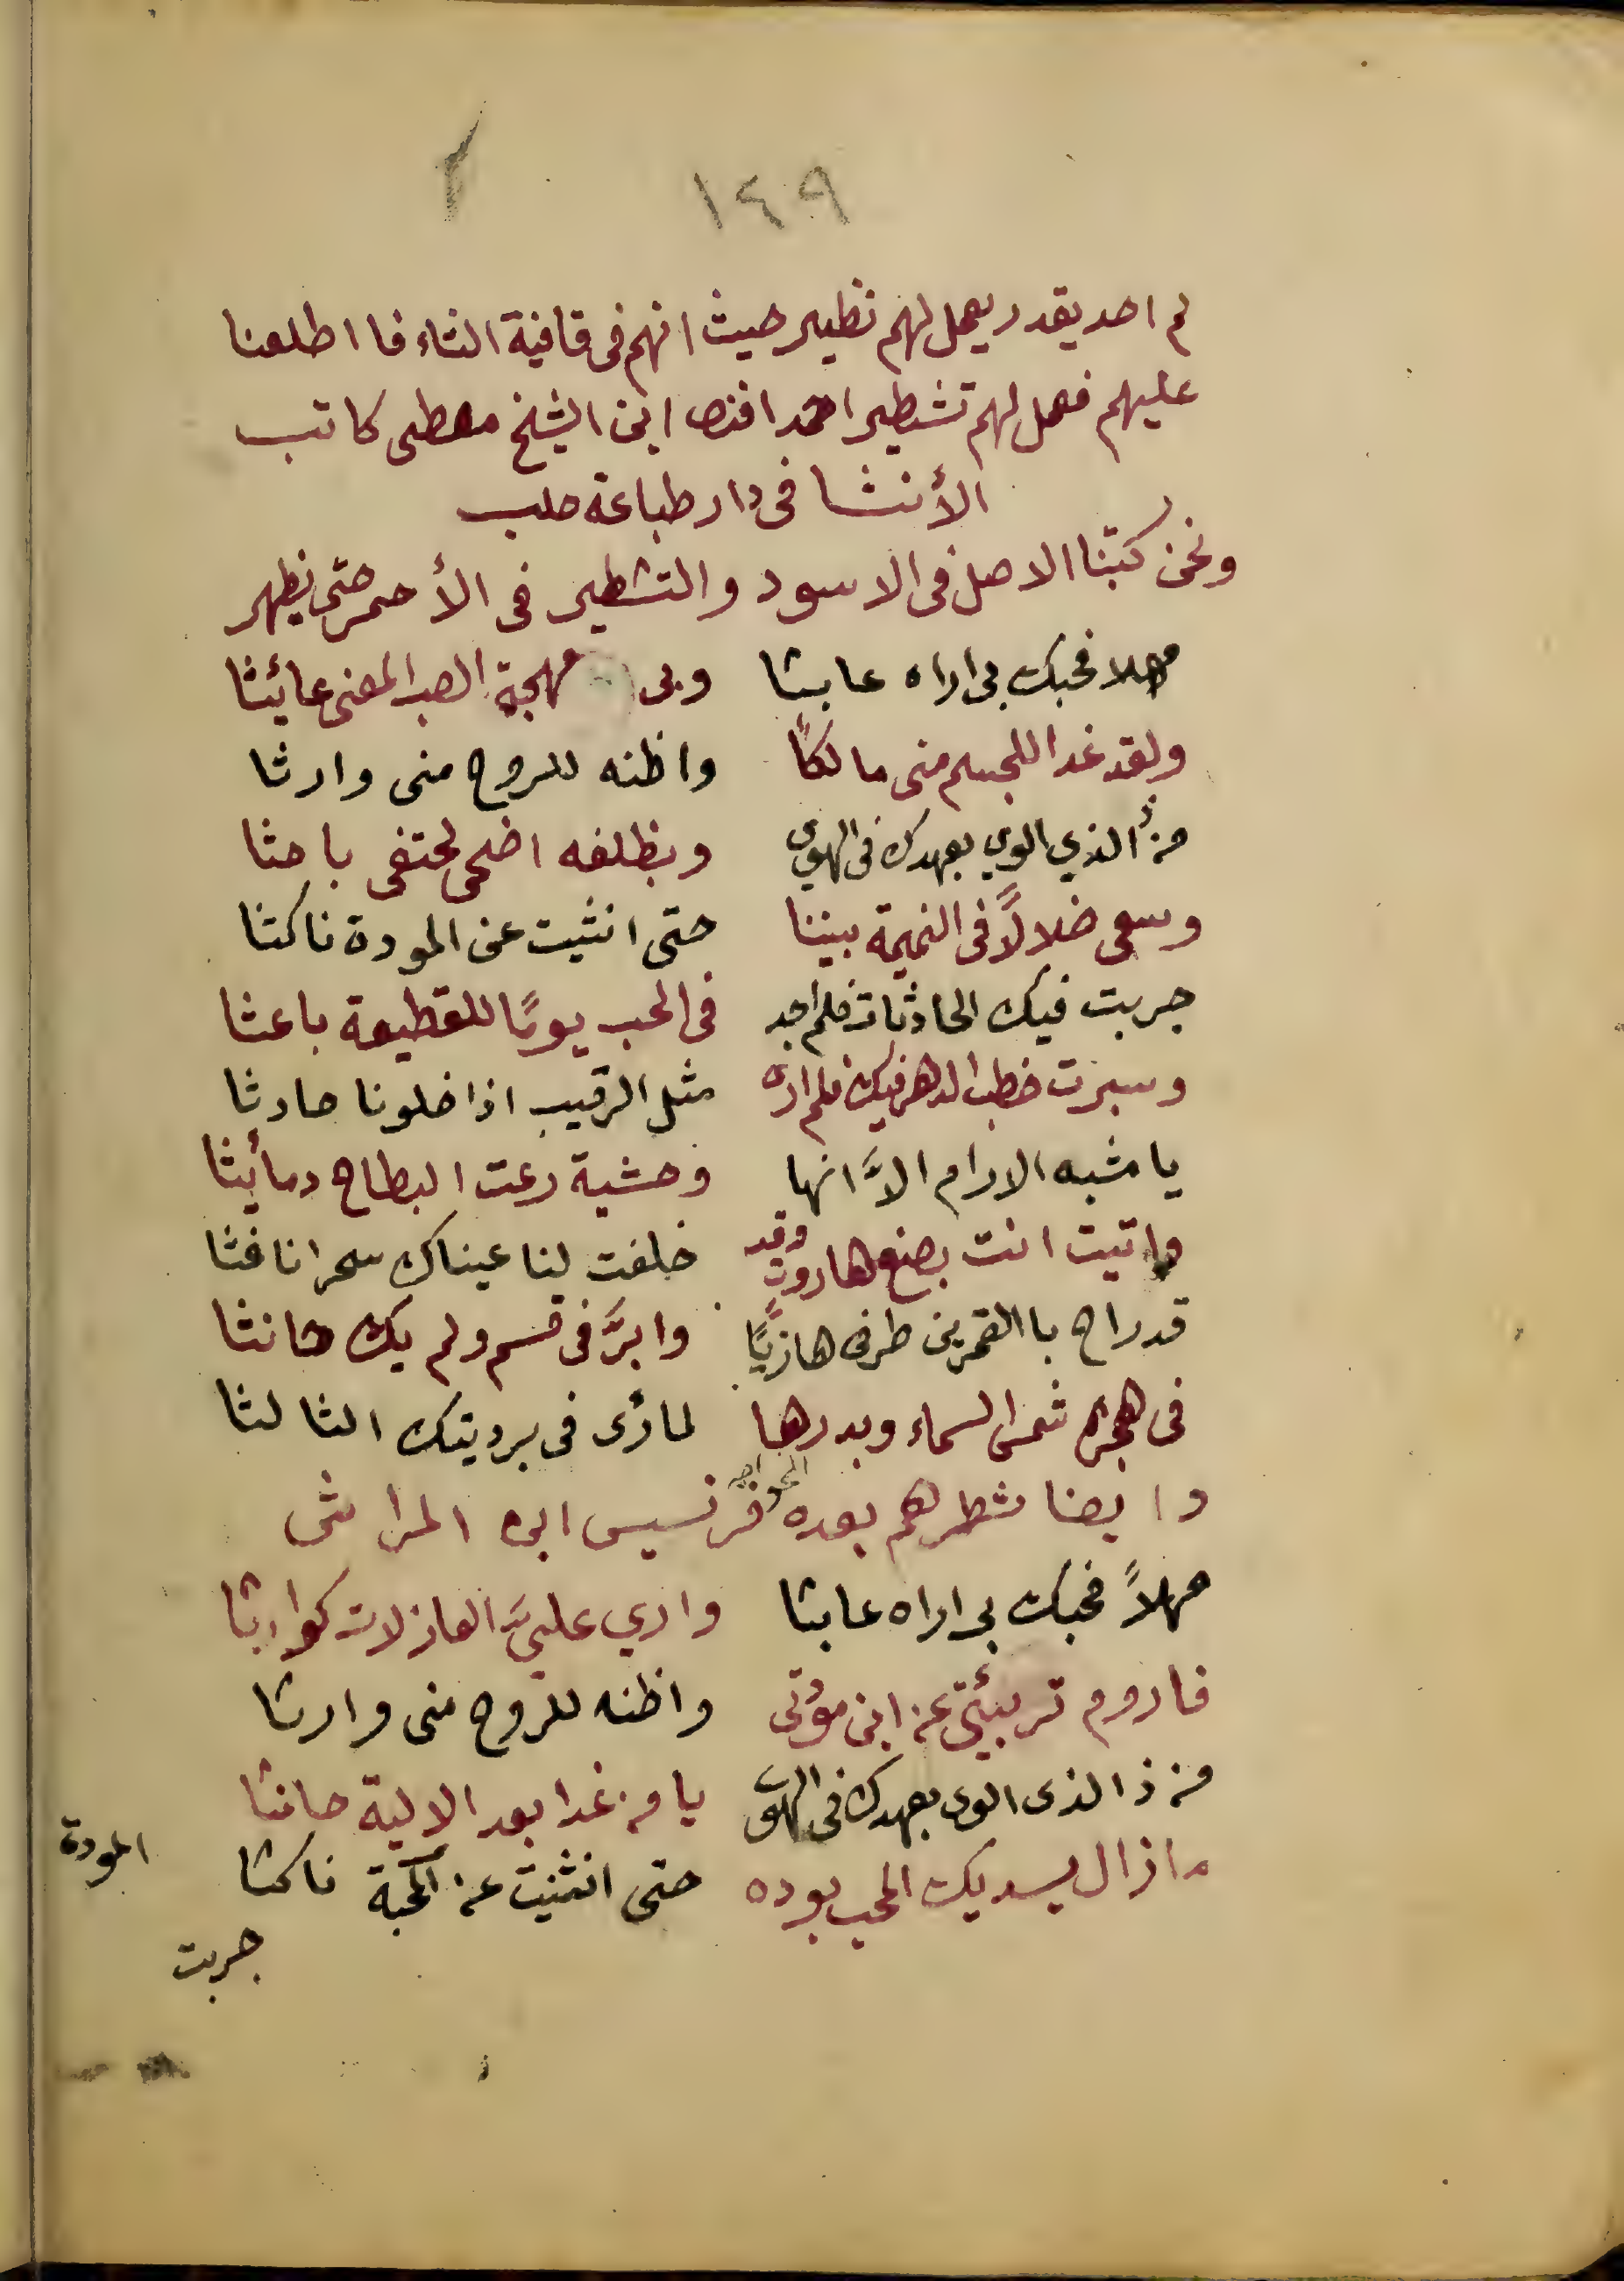 ١٤٩
لم احد يقدر يعمل لهم نظير حيث انهم في قافية الثاء فا اطلعنا
عليهم فعمل لهم تشطير احمد افند ابن الشيخ معطى كاتب
الأنشا في دار طباعة حلب
ونحن كتبنا الاصل في الاسود والتشطير في الأحمر حتى يظهر
مهلا فحبك بي اراه عابثا وبى مهجة الصب المعنى عائثا
ولقد غدا للجسم منى مالكًا واظنه للروح منى وارثا
من الذي الوي بعهدك في الهوى وبظلفه اضحى لحتفى باحثا
وسعى ضلالًا في النميمة بيننا حتى انثيت عن المودة ناكثا
جربت فيك الحادثات فلم اجد في الحب يومًا للقطيعة باعثا
وسبرت خطب الدهر فيك فلم ارى مثل الرقيب اذا خلونا حادثا
يا مشبه الارام الاَّ انها وحشية رعت البطاح دمائثا
واتيت انت بصنع هاروت وقد خلفت لنا عيناك سحرا نافثا
قد راح با القمرين طرفى هازيًا وابرَّ في قسم ولم يك حانثا
في هجره شمس السماء وبدرها لمارٔى في برديتك الثالثا
وايضا شطرهم بعده الخواجه فرنسيس ابن المراشى
مهلاً فحبك بي اراه عابثا واري عليَّ العازلات كوارثا
فاروم تربئتي عن ابن مؤتى واظنه للروح منى وارثا
من ذا الذى الوى بعهدك في الهوى يا من غدا بعد الالية حانثا
مازال يسديك المحب بوده حتى انثنيت عن المحبة ناكثا
المودة
جربت